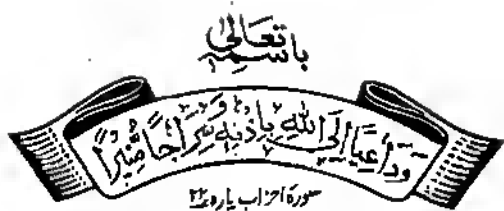 باسمہ تعالیٰ
وَدَاعِيًا إِلَى اللهِ بِإِذْنِهِ وَسِرَاجًا مُّنِيرًا
سورۃ احزاب پارہ ۲۲